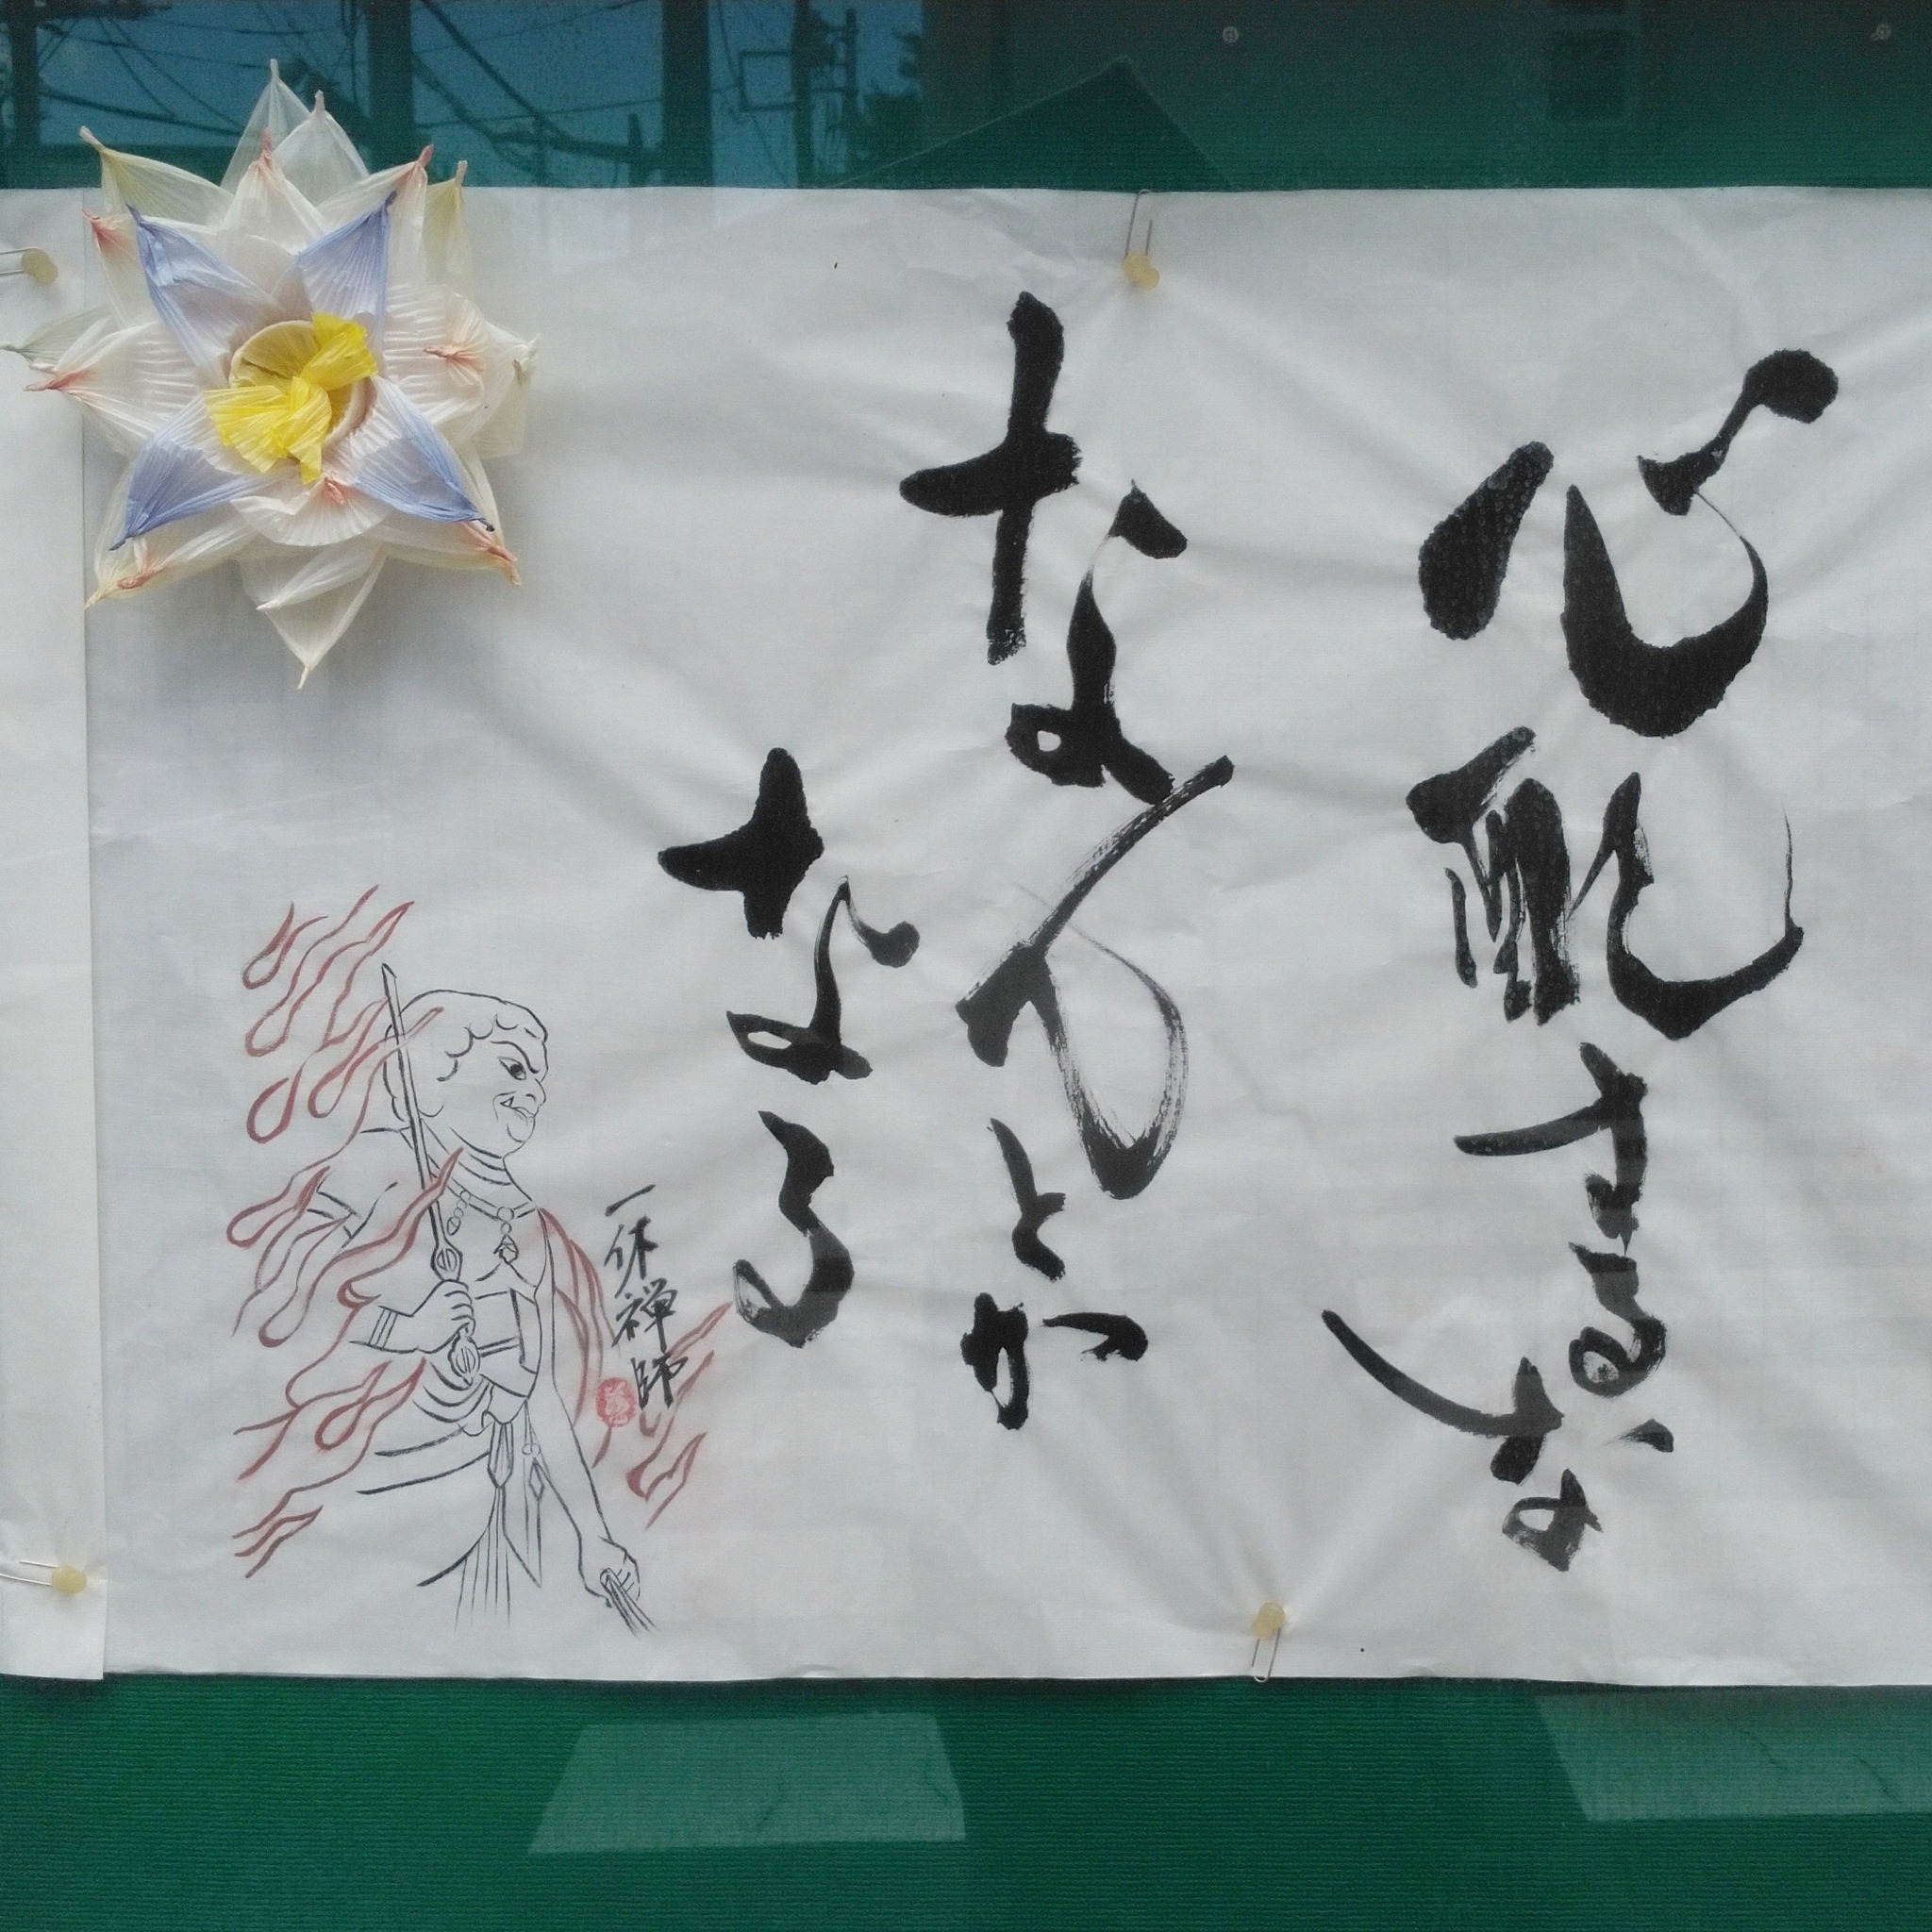 心配するな
なんとか
なる
一休禅師